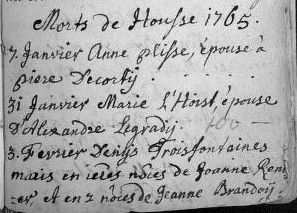 Morts de Housse 1765.
7. Janvier Anne plisse, épouse à
piere Decortÿ
31 Janvier Marie L'Hoist épouse
D'Alexandre Legradÿ
3. Fevrier Denÿs Troisfontaines
mais en ieres nôces de Joanne Rend
er, et en 2 nôces de Jeanne Brandoÿ